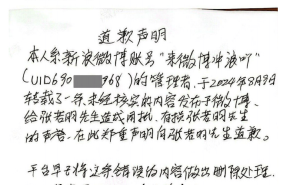 道歉声明
本人系新浪微博账号“来微博冲浪吖”
(UID690 968)的管理者，于2024年3月3日
转载了一条未经核实的内容发布于微博，
给张若昀先生造成困扰，有损张若昀先生
的声誉，在此郑重声明向张若昀先生道歉。
平台早已将这条错误的内容做出删除处理，